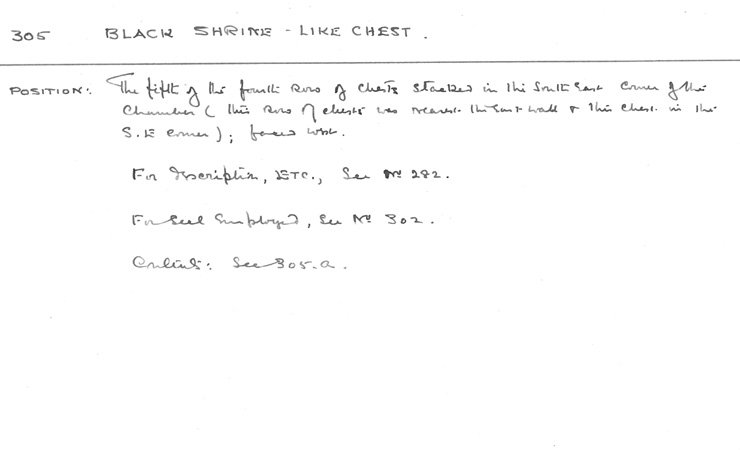 305 BLACK SHRINE - LIKE CHEST.
POSITION: The fifth of the fourth Row of Chests stacked in the South East Corner of the
Chamber (this Row of chests was nearest the East wall & this Chest in the
S.E corner); faced West.
For Description, ETC., See Nº 282.
For Seal Employed, See Nº 302.
Contents: See 305.a.